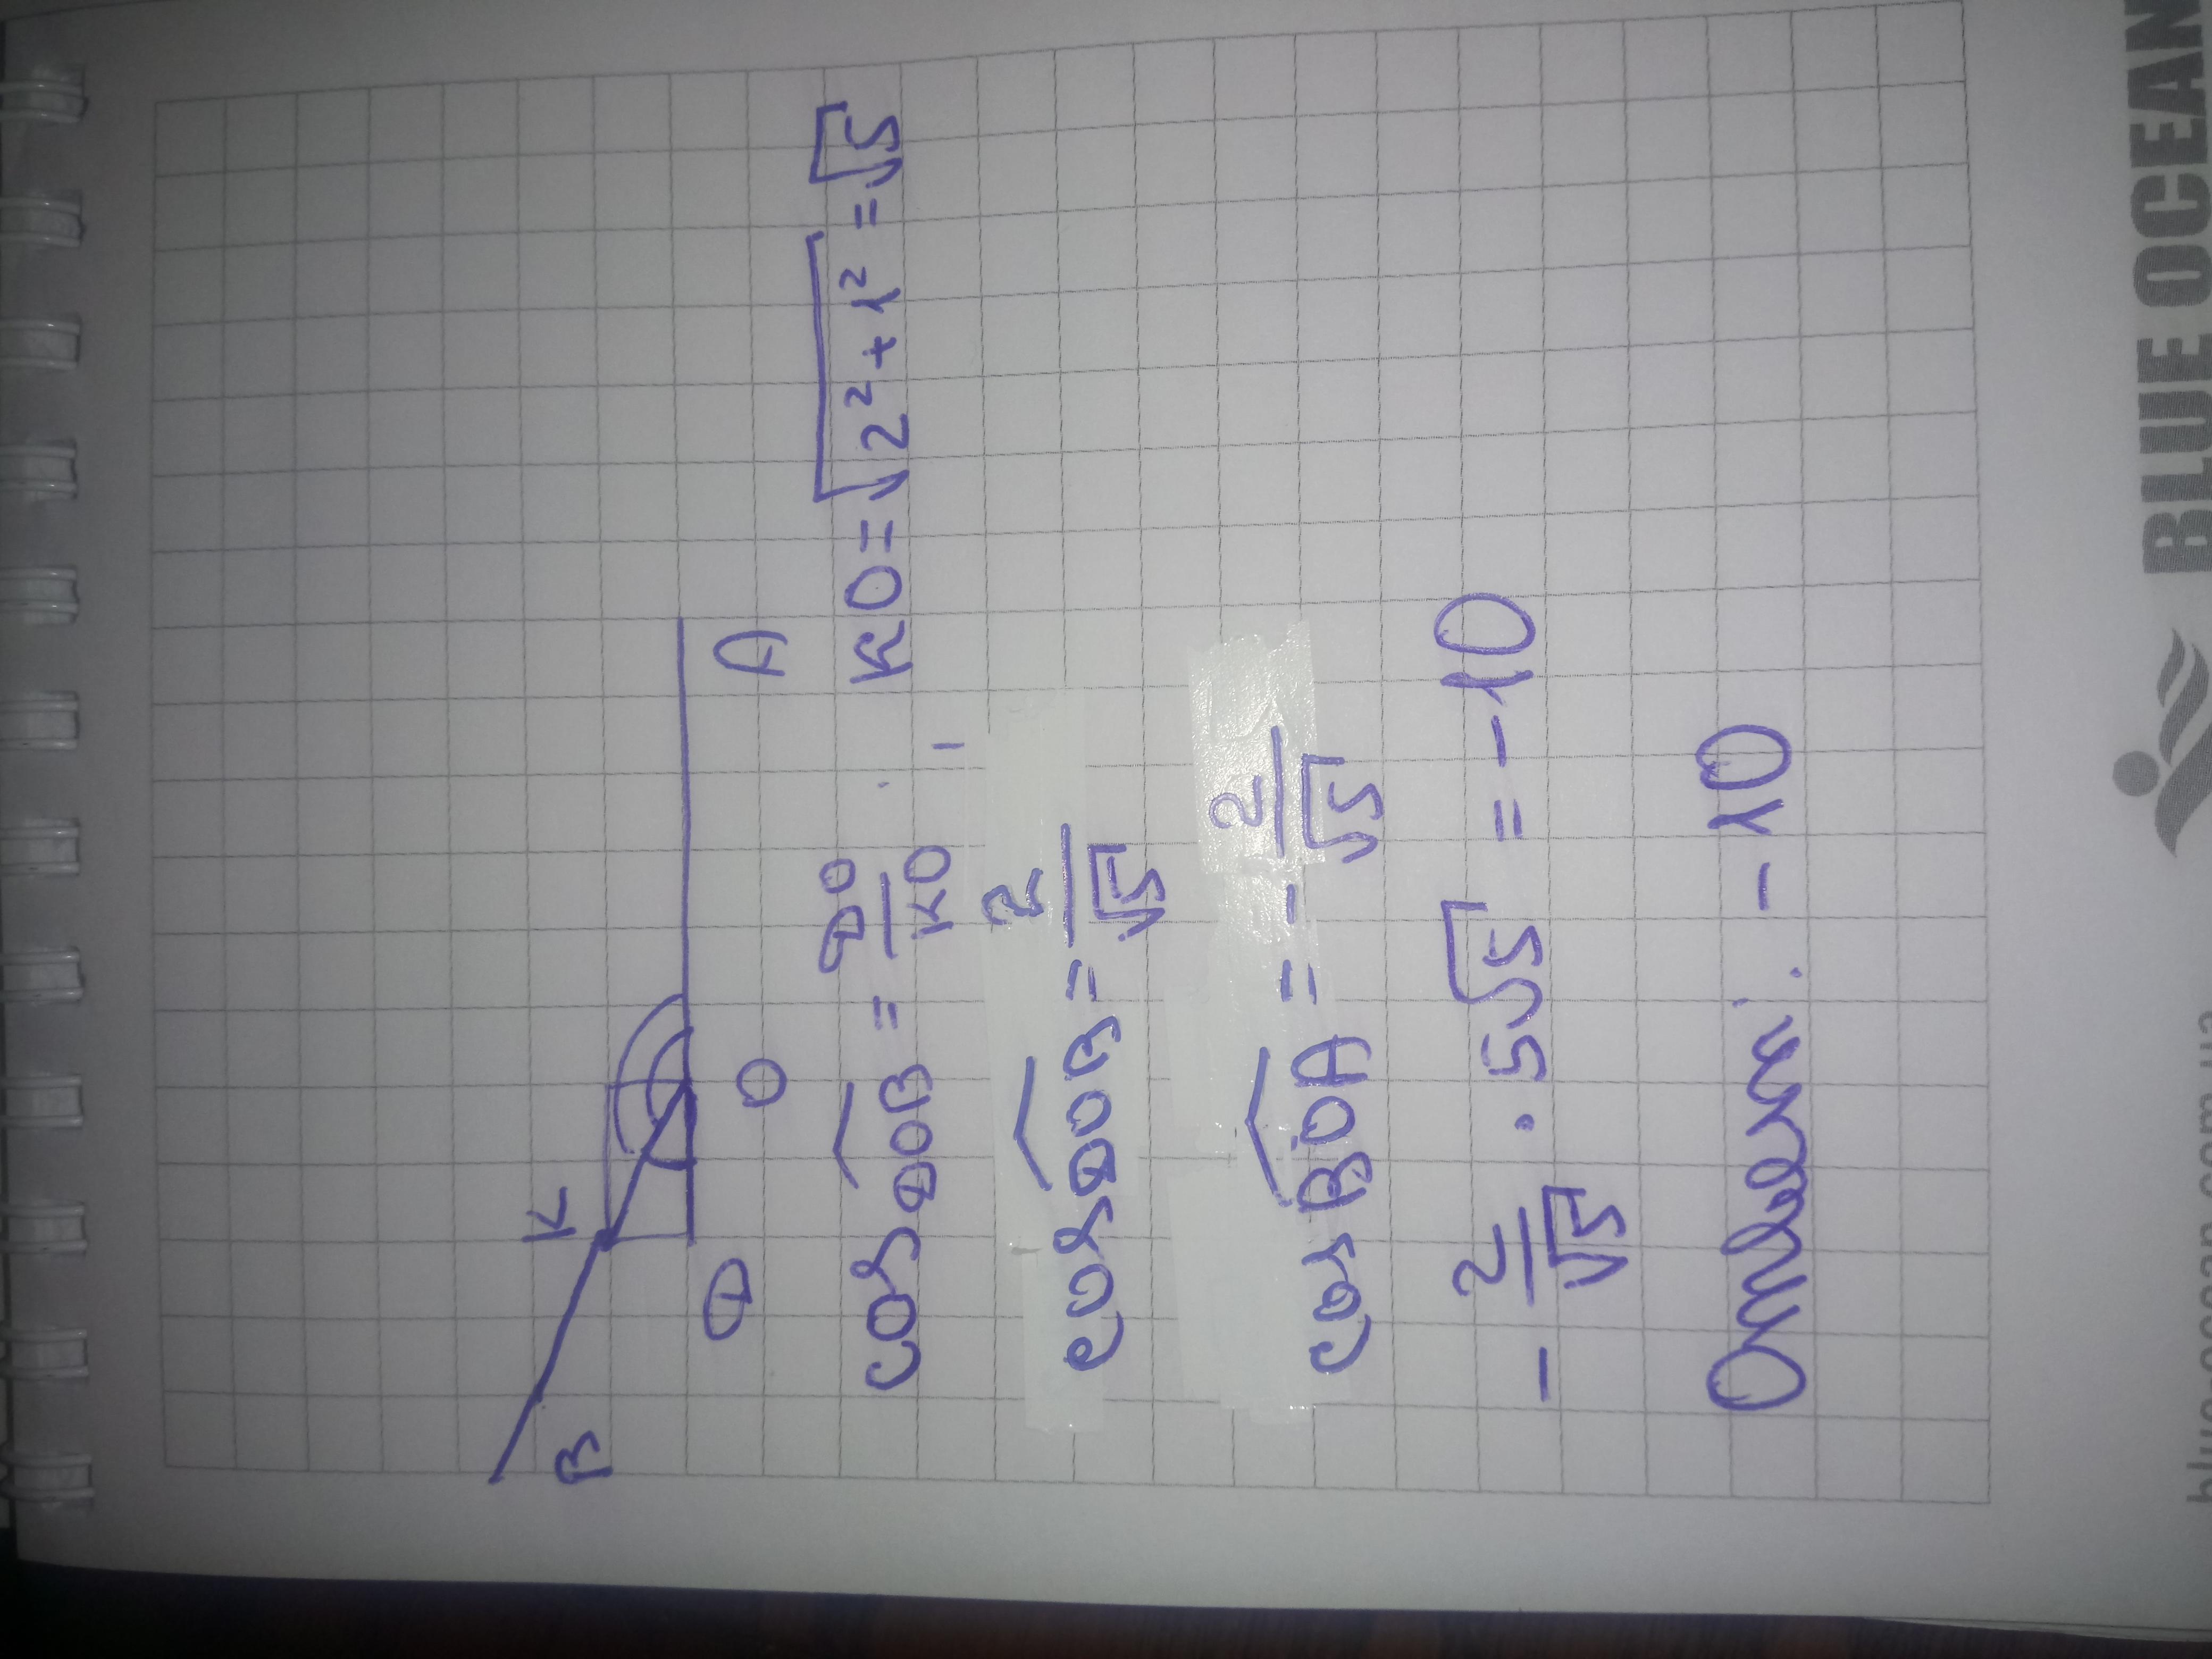 B
K
D O A
cos DOB = DO/KO KO = √(2² + 1²) = √5
cos DOB = 2/√5
cos BOA = - 2/√5
- 2/√5 · 5√5 = - 10
Ответ: - 10
BLUE OCEAN
blueocean.com.ua